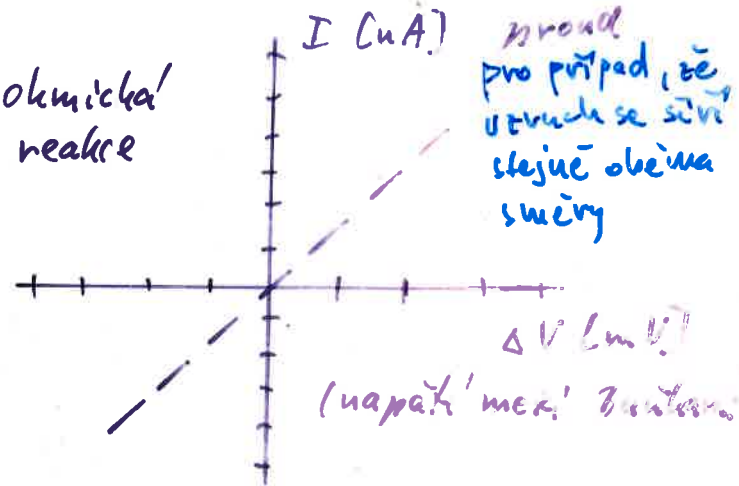 I [nA]
proud
ohmická
reakce
pro případ, že
vzruch se šíří
stejně oběma
směry
Δ V [mV]
(napětí mezi